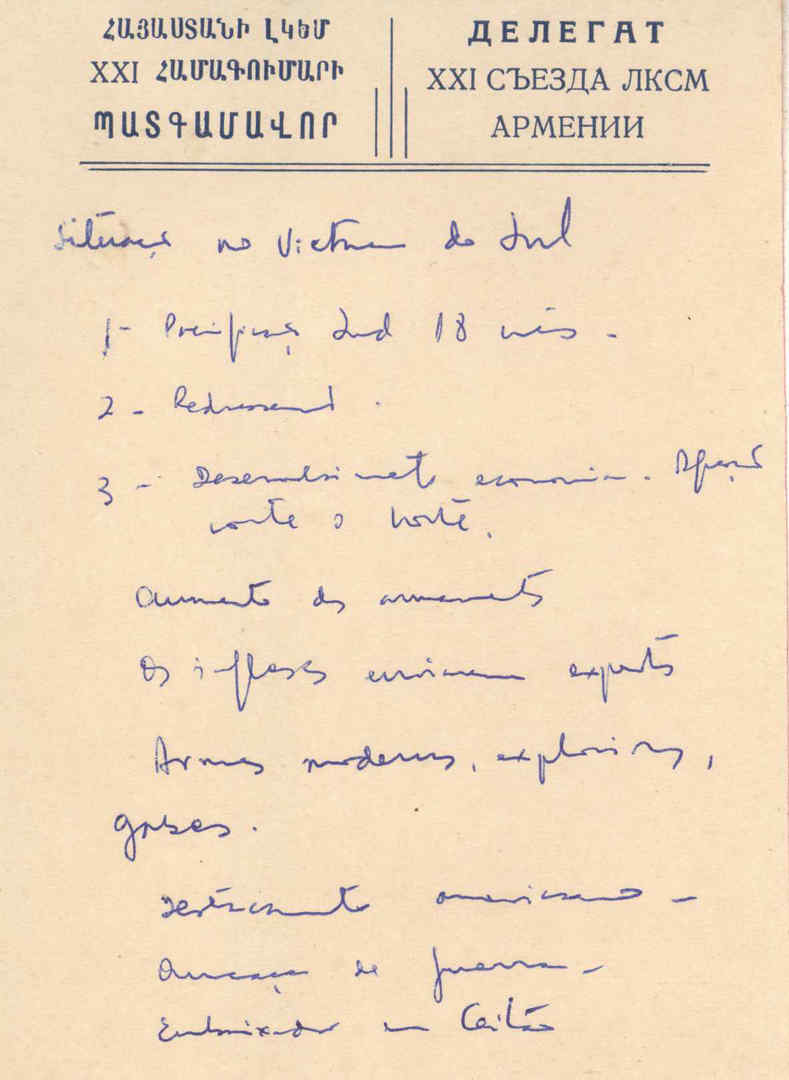 ՀԱՅԱՍՏԱՆԻ ԼԿԵՄ
XXI ՀԱՄԱԳՈՒՄԱՐԻ
ՊԱՏԳԱՄԱՎՈՐ
ДЕЛЕГАТ
XXI СЪЕЗДА ЛКСМ
АРМЕНИИ
Situação no Vietnam do Sul
1- Pacificação Sud 18 mês -
2 - Redressement .
3 - Desenvolvimento economia .
norte o norte.
Aumento dos armamentos
Os ingleses enviaram experts
Armas modernas, explosivos,
gases.
americano -
Ameaça de guerra -
Embaixador em Ceilão